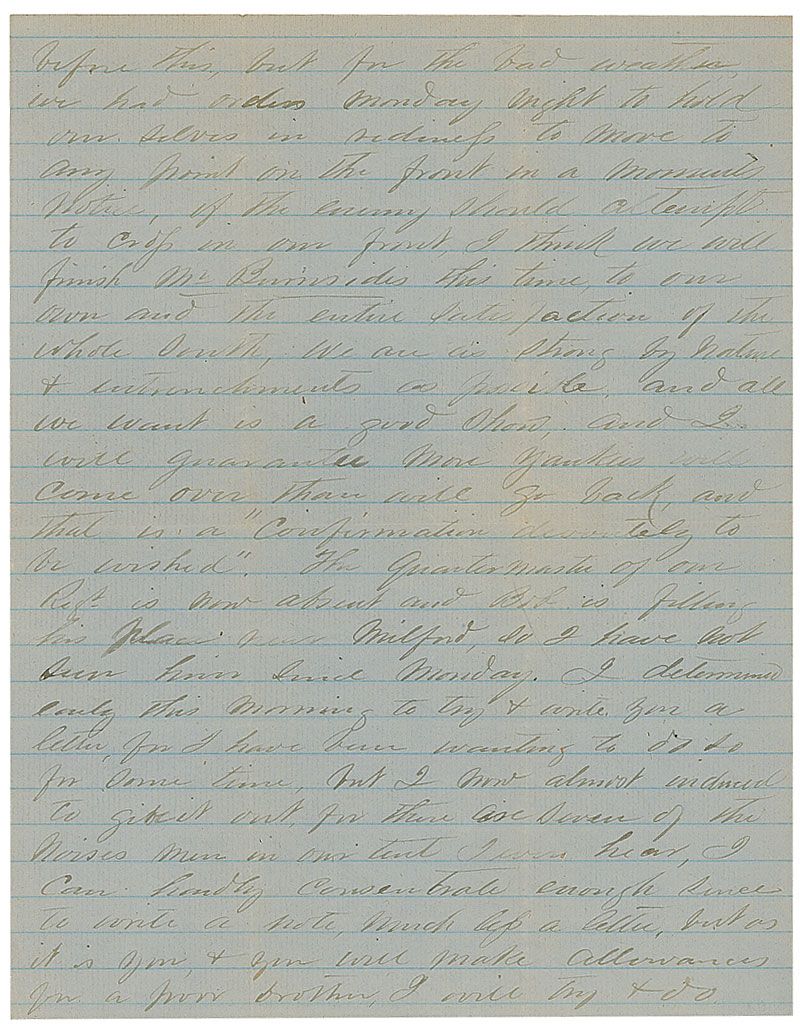 before this, but for the bad weather,
we had orders Monday night to hold
our selves in rediness to move to
any point on the front in a moments
Notice, if the enemy should attempt
to cross in our front, I think we will
finish Mr Burnsides this time, to our
own and the entire satisfaction of the
whole South, We are as strong by Nature
& entrenchments as possible, and all
we want is a good Show, and I
will guarantee More Yankees will
come over than will go back, and
that is a "Confirmation devoutely to
be wished". The Quartermaster of our
Regt is now absent and Bob is filling
his place near Milford, so I have not
seen him since Monday. I determined
early this Morning to try & write you a
letter, for I have been wanting to do so
for some time, but I now almost induced
to give it out, for there are seven of the
Noises men in our tent I ever hear, I
can hardly Consentrate enough sence
to write a note, much less a letter, but as
it is you, & you will make allowances
for a poor brother, I will try & do